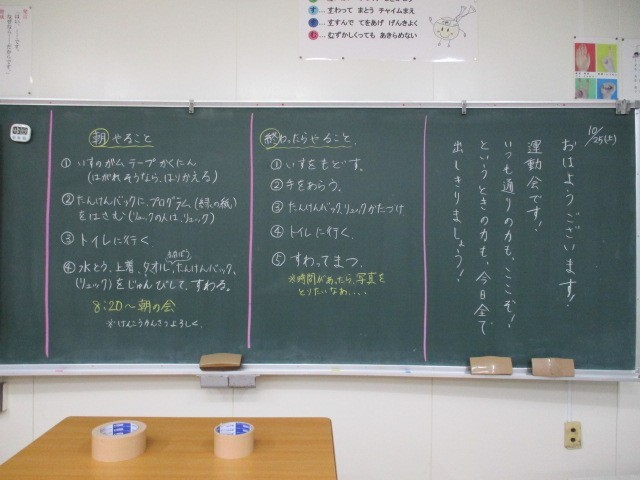 す… すわって まとう チャイムまえ
す… すすんで てをあげ げんきよく
む… むずかしくっても あきらめない
10/25(土)
おはようございます!
運動会です!
いつも通りの力も、ここぞ!
というときの力も、今日全て
出しきりましょう!
朝やること
① いすのガムテープかくにん
(はがれそうなら、はりかえる)
② たんけんバックに、プログラム(緑の紙)
をはさむ(リュックの人は、リュック)
③ トイレに行く
④ 水とう、上着、タオル、たんけんバック、
(リュック)をじゅんびして、すわる。
8:20~朝の会
※けんこうかんさつよろしく。
終わったらやること
① いすをもどす。
② 手をあらう。
③ たんけんバック、リュックかたづけ
④ トイレに行く。
⑤ すわってまつ。
※時間があったら、写真を
とりたいなぁ....